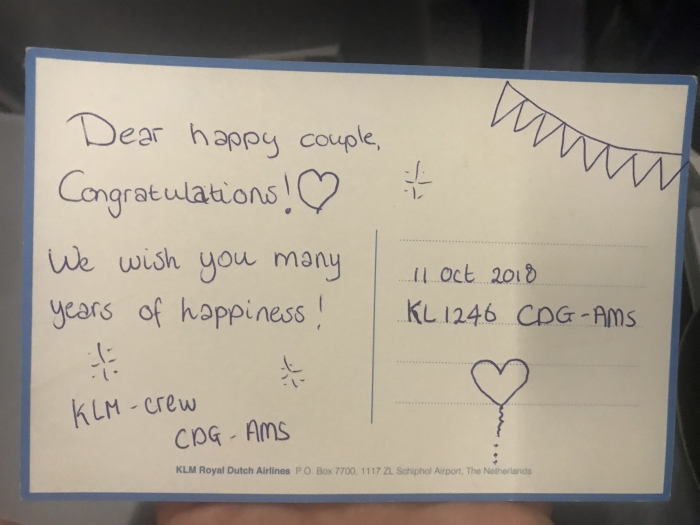 Dear happy couple,
Congratulations!♡
We wish you many
years of happiness!
KLM-crew
CDG-AMS
11 Oct 2018
KL1246 CDG-AMS
KLM Royal Dutch Airlines P.O. Box 7700, 1117 ZL Schiphol Airport, The Netherlands